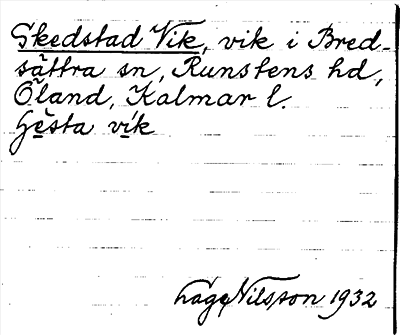 Skedstad Vik, vik i Bred-
sättra sn, Runstens hd,
Öland, Kalmar l.
Gesta vik
Lage Nilsson 1932